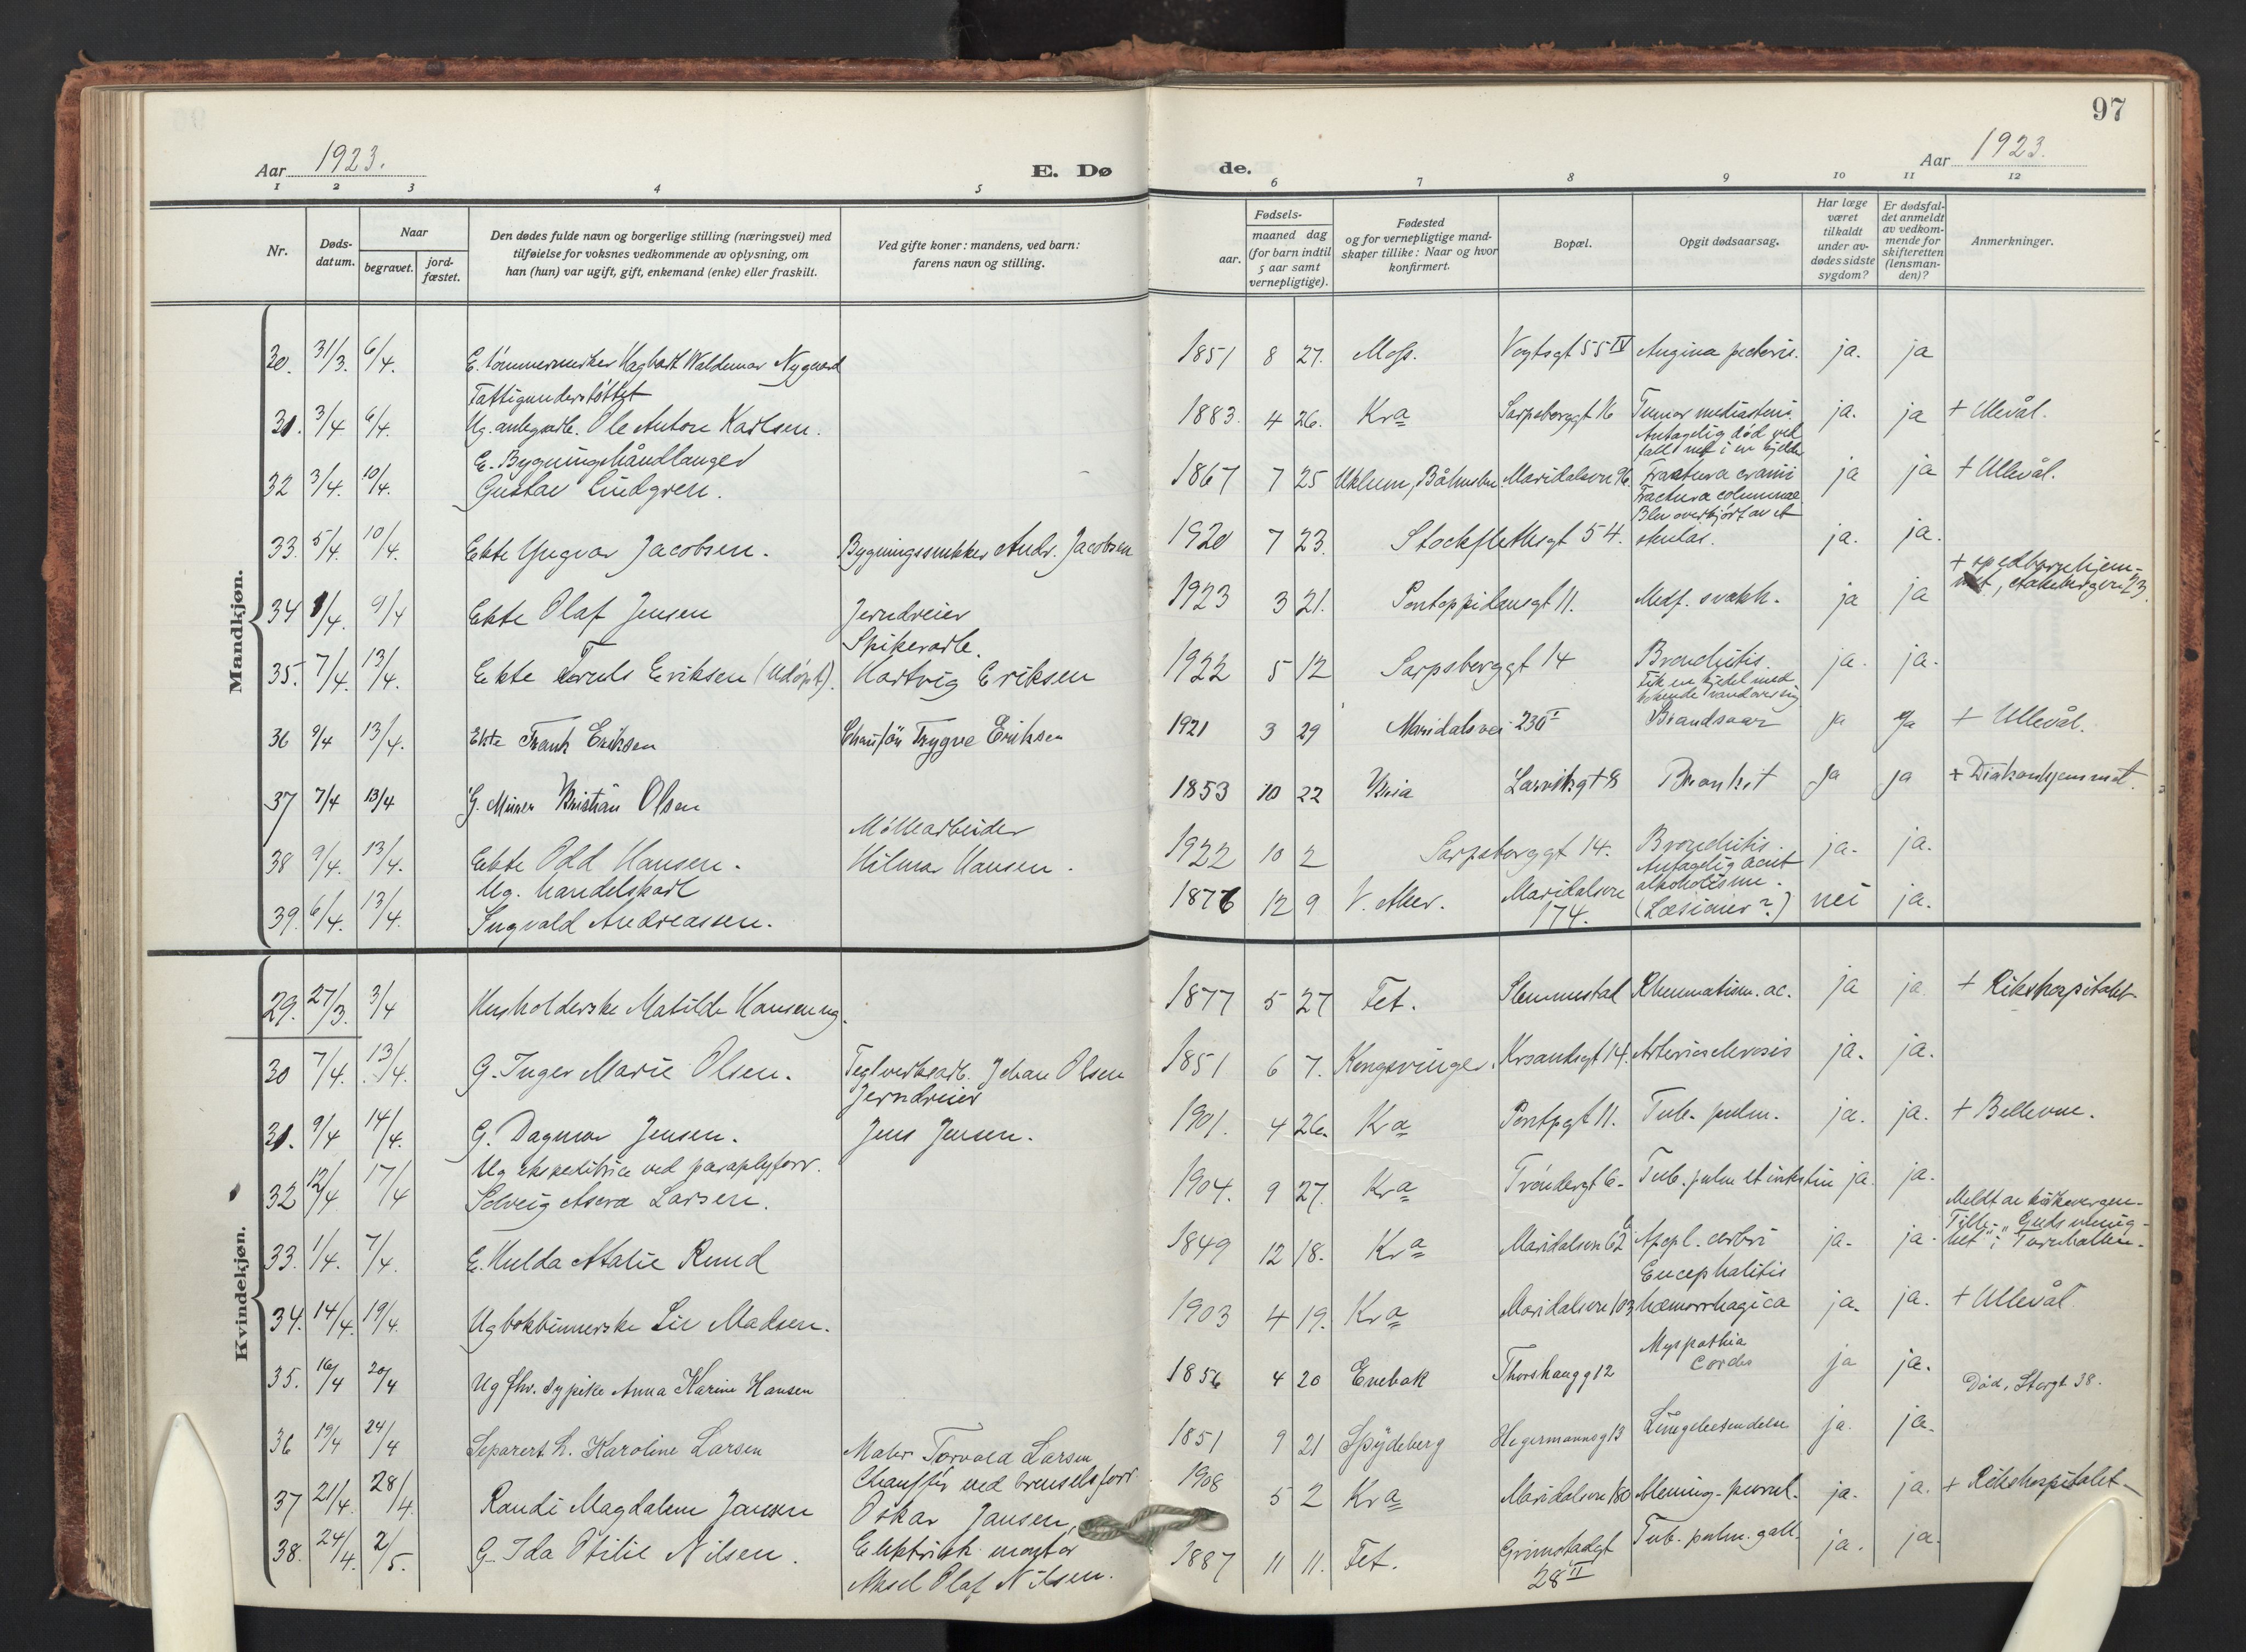 97
Aar 1923.
E. Dø
de.
Aar 1923.
1 2 3 4 5 6 7 8 9 10 11 12
Nr.
Døds-
datum.
Naar
begravet.
jord-
fæstet.
Den dødes fulde navn og borgerlige stilling (næringsvei) med
tilføielse for voksnes vedkommende av oplysning, om
han (hun) var ugift, gift, enkemand (enke) eller fraskilt.
Ved gifte koner: mandens, ved barn:
farens navn og stilling.
Fødsels-
aar.
maaned dag
(for barn indtil
5 aar samt
vernepligtige).
Fødested
og for vernepligtige mand-
skaper tillike: Naar og hvor
konfirmert.
Bopæl.
Opgit dødsaarsag.
Har læge
været
tilkaldt
under av-
dødes sidste
sygdom?
Er dødsfal-
det anmeldt
av vedkom-
mende for
skifteretten
(lensman-
den)?
Anmerkninger.
Mandkjøn.
30. 31/3. 6/4. E. tømmermerker Hagbart Waldemar Nygaard 1851 8 27. Moss. Vogtsgt 55 IV Angina pectoris. ja. ja
Fattigunderstøttet
31. 3/4 6/4. Ug. anlegsarb. Ole Anton Karlsen. 1883. 4 26. Kra Sarpsborggt 16 Tumor mediastini ja. ja + Ulevål.
Antagelig død ved
fall ned i en kjelder
E. Bygningshåndlanger
32 3/4. 10/4. Gustav Lindgren. 1867 7 25 Uklum, Båhuslen Maridalsvn 96. Fractura cranii ja ja + Ullevål.
Fractura columnae
Blev overkjørt av et
33. 5/4. 10/4. Ekte Yngvar Jacobsen. Bygningssnekker Andr. Jacobsen 1920 7 23. Stockflethsgt 54. ja. ja.
+ spedbarnhjem-
34 8/4. 9/4 Ekte Olaf Jensen Jerndreier 1923 3 21. Pontoppidansgt 11. Medf. svakh. ja ja
Spikerarb.
35. 7/4. 13/4. Ekte Eriksen (Udøpt). Hartvig Eriksen 1922 5 12 Sarpsborggt 14 Bronchitis. ja. ja.
Fik en kjedel med
kokende vand over sig
36 9/4 13/4. Ekte Frank Eriksen Chaufför Trygve Eriksen 1921 3 29 Maridalsvei 230 I Brandsaar ja ja + Ullevål.
37 7/4 13/4 G. Murer Kristian Olsen 1853 10 22 Kria Larvikgt 8 Bronkit Ja ja + Diakonhjemmet.
Møllearbeider
38 9/4. 13/4. Ekte Odd Hansen. Hilmar Hansen. 1922 10 2 Sarpsborggt 14. Bronchitis. ja. ja.
Antagelig acut
alkoholisme.
Ug. handelskarl
39. 6/4. 13/4. Ingvald Andreassen. 1876 12 9 V. Aker. Maridalsvn
174. (Læsioner?) nei ja.
Kvindekjøn.
29. 27/3. 3/4 Husholderske Matilde Hansen ug. 1877 5 27 Fet. Slemmestad Rheumatism. ac. ja ja + Rikshospitalet
30 7/4. 13/4. G. Inger Marie Olsen. Teglverksarb. Johan Olsen 1851 6 7. Kongsvinger. Krsandsgt 14. Arteriosclerosis ja. ja.
Jerndreier
31. 9/4 14/4. G. Dagmar Jensen. Jens Jensen. 1901. 4 26. Kra Pontpgt 11. Tub. pulm. ja. ja. + Bellevue.
Ug ekspeditrice ved paraplyforr.
32 12/4 17/4 Solveig Asora Larsen. 1904. 9 27. Kra Trøndergt 6. Tub. pulm et intestin ja. ja.
33. 1/4. 7/4. E. Hulda Atalie Ruud 1849 12 18. Kra Maridalsvn 62 Apopl. cerbri ja. ja.
Tilh. "Guds menig-
het" i Turnhallen.
Encephalitis
34. 14/4. 19/4. Ug bokbinnerske Liv Madsen. 1903 4 19. Kra Maridalsvn 103 hæmorrhagica ja. ja. + Ullevål
35. 16/4 20/4 Ug fhv. sypike Anna Karine Hansen 1856 4 20 Enebak Thorshaugg 12 Myopathia
Cordis ja ja. Död, Storgt. 38.
36 19/4 24/4 Separert h. Karoline Larsen Maler Torvald Larsen 1851 9 21 Spydeberg Hegermannsg 13 Lungebetendelse ja. ja.
Chauffør ved brenselsforr.
37 21/4. 28/4. Randi Magdalene Jansen Oskar Jansen, 1908 5 2 Kra Maridalsvn 180 Mening. purul. ja. ja. + Rikshospitalet
38. 24/4. 2/5. G. Ida Otilie Nilsen. Elektrisk montør 1887 11 11. Fet. Grimstadgt
28 II Tub. pulm. gall. ja. ja.
Aksel Olaf Nilsen.